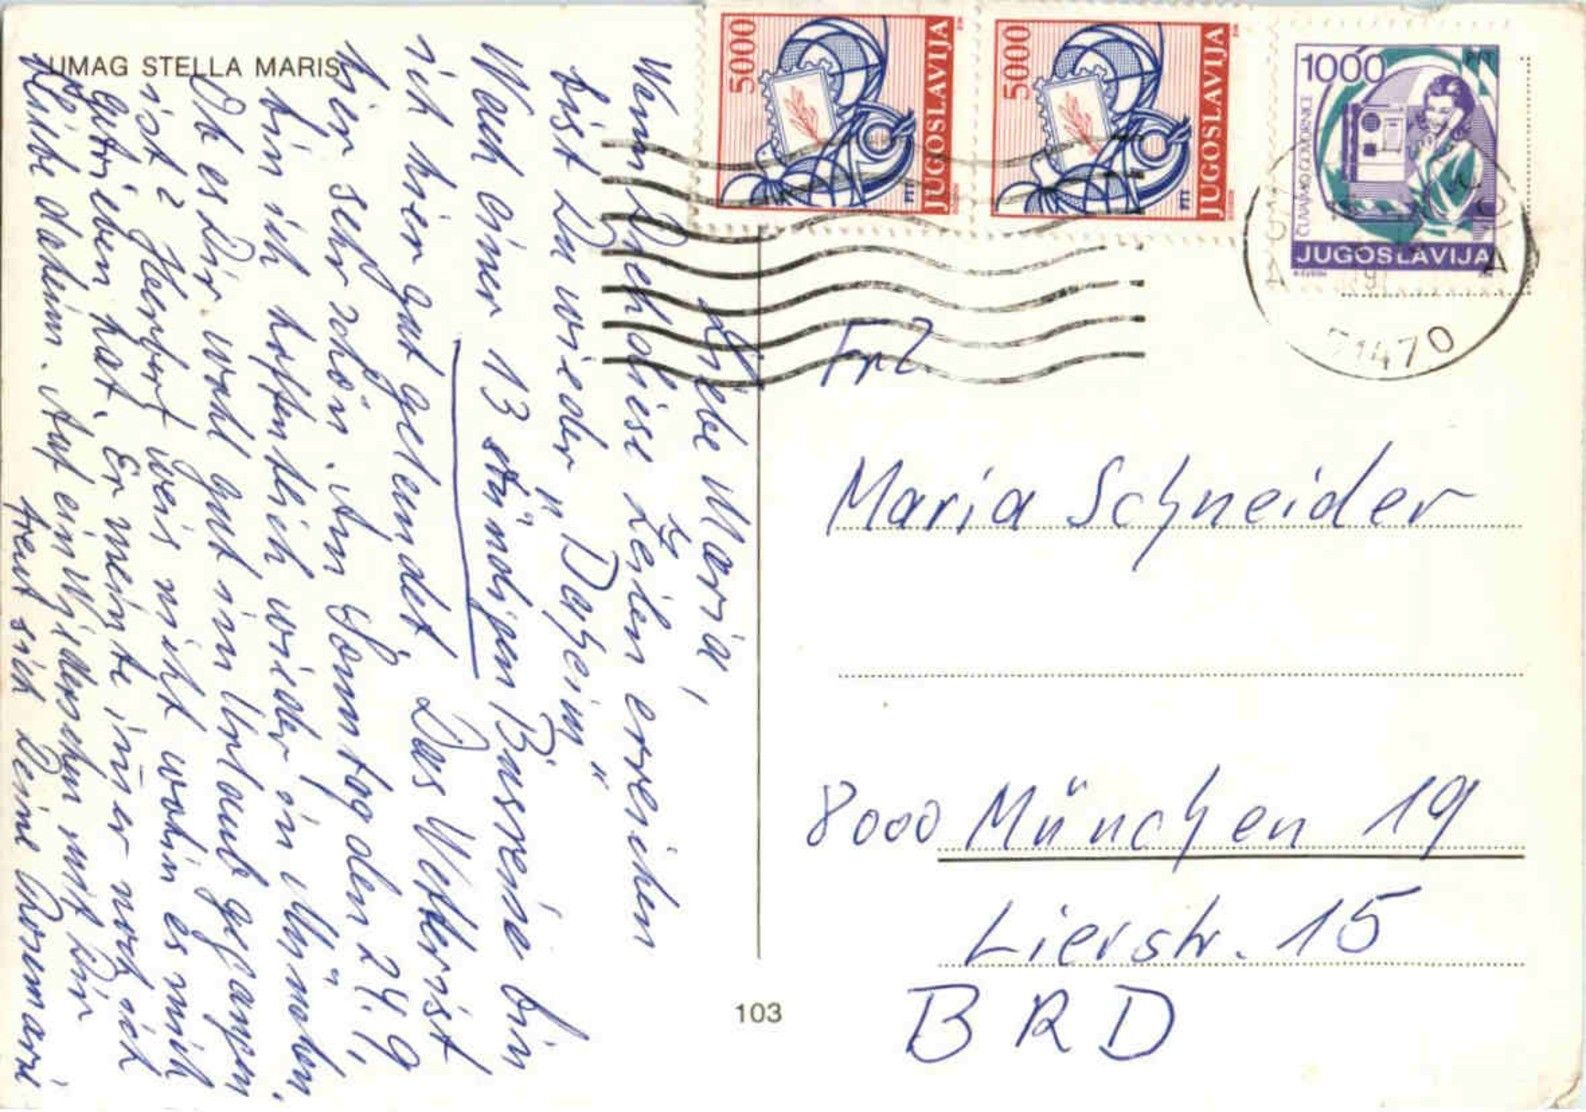 UMAG STELLA MARIS
Liebe Maria,
Wenn Dich diese Zeilen erreichen
bist Du wieder "Daheim"
Nach einer 13 stündigen Busreise bin
ich hier gut gelandet. Das Wetter ist
hier sehr schön. Am Sonntag den 24.9,
bin ich hoffentlich wieder in München.
Ob es Dir wohl gut im Urlaub gegangen
ist? Herbert weis nicht wohin es mich
getrieben hat. Er meinte im̄er noch ich
bliebe daheim. Auf ein Wiedersehen mit Dir
freut sich Deine Rosemarie
5000
PTT
JUGOSLAVIJA
5000
PTT
JUGOSLAVIJA
1000
PTT
ČUVAJMO GOVORNICE
JUGOSLAVIJA
51470
Frl.
Maria Schneider
8000 München 19
Lierstr. 15
BRD
103